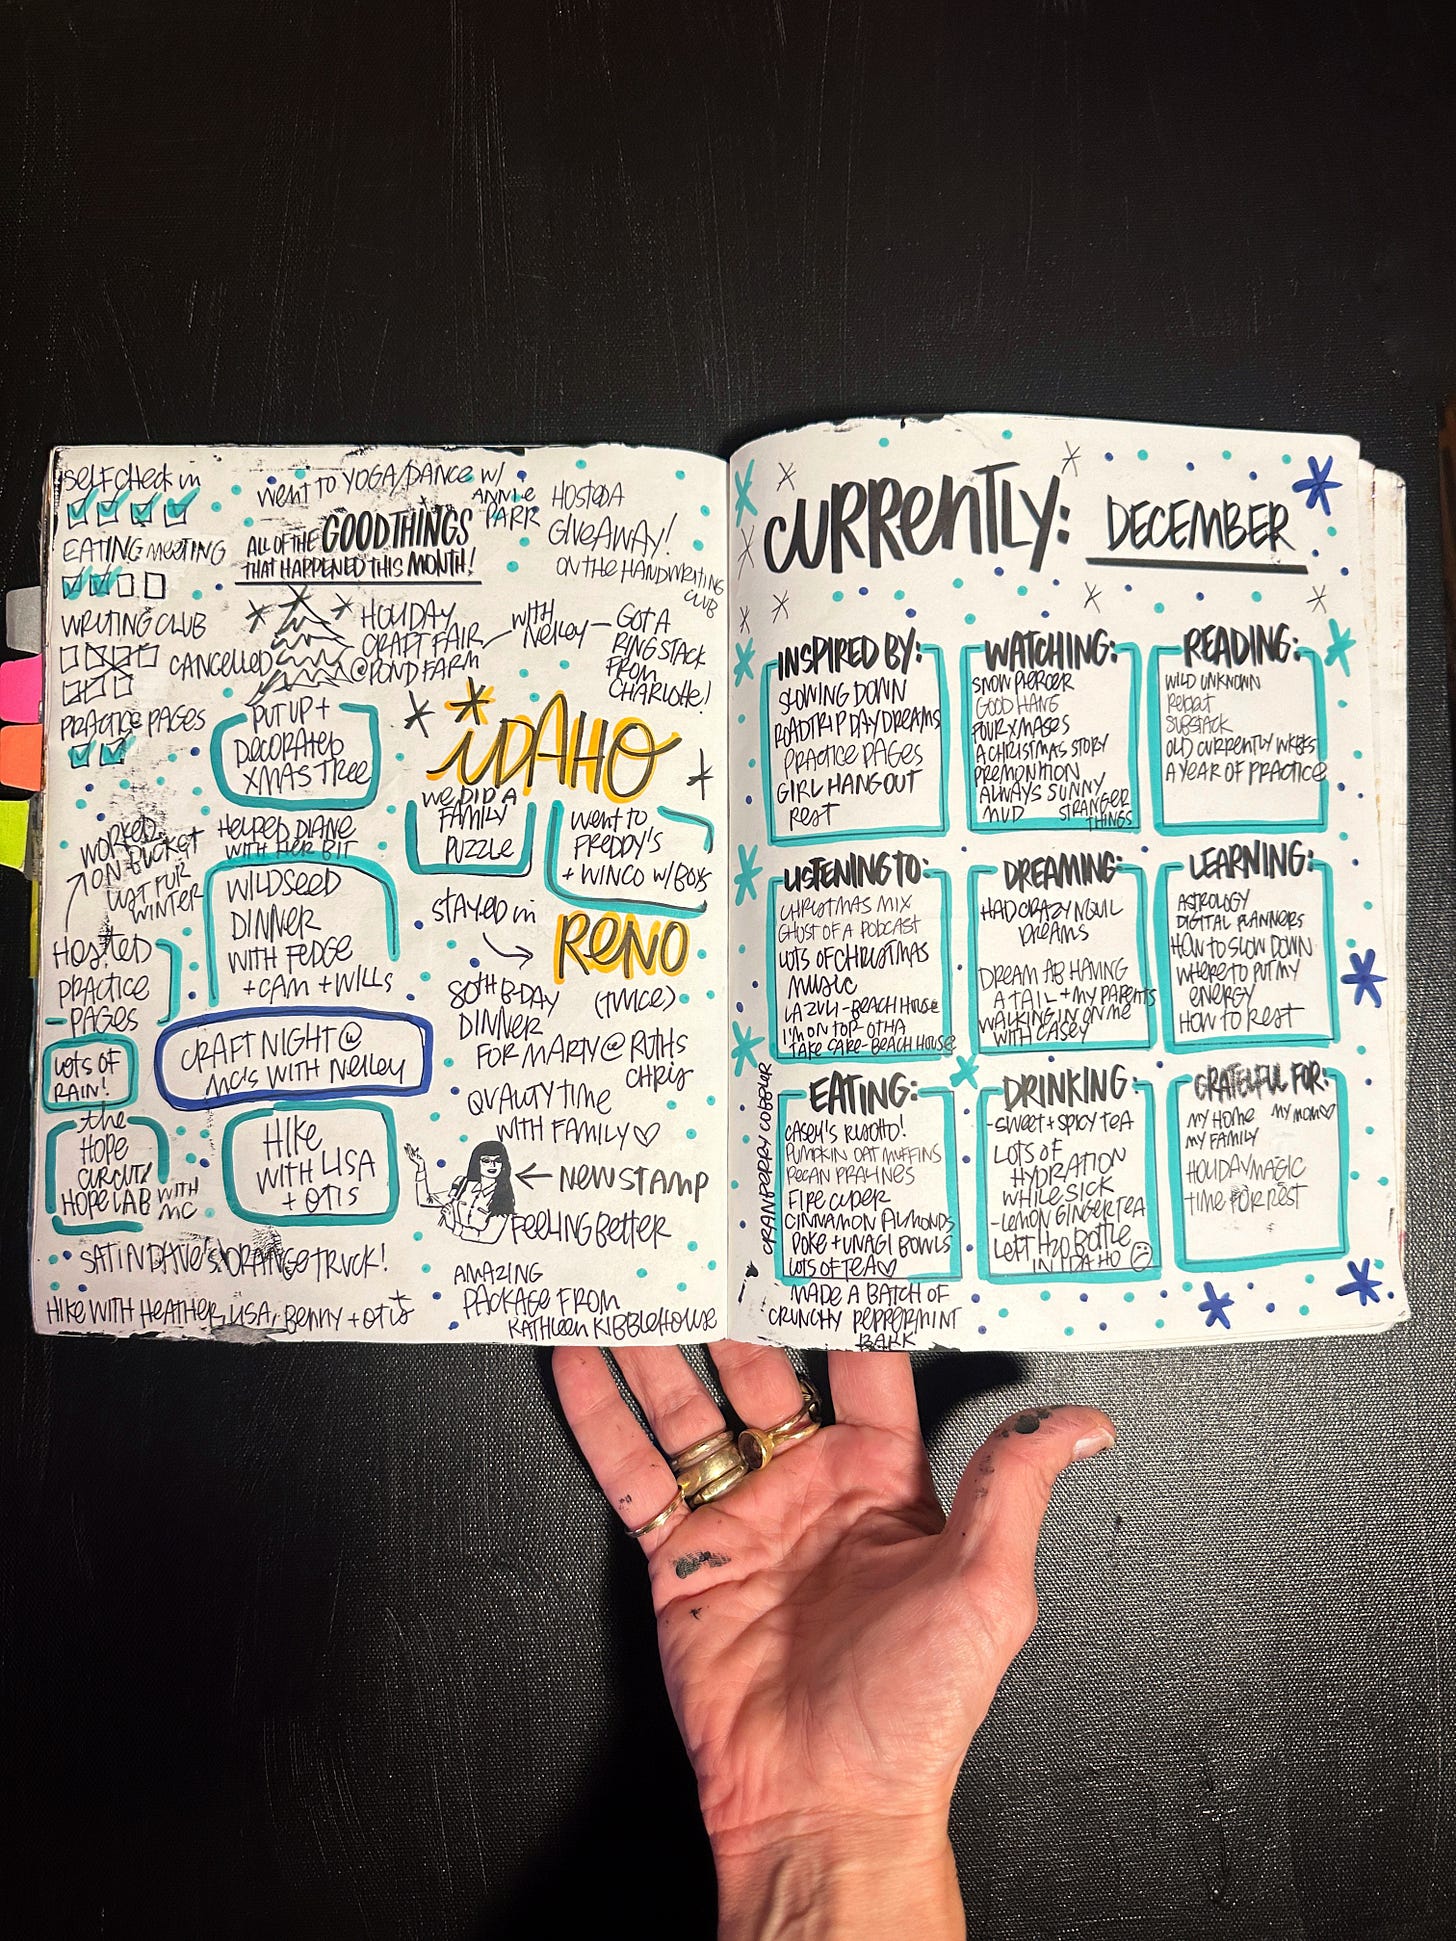 SELF CHECK IN
EATING MEETING
WRITING CLUB
CANCELLED
PRACTICE PAGES
WENT TO YOGA/DANCE W/
ANNIE
PARR
ALL OF THE GOOD THINGS
THAT HAPPENED THIS MONTH!
HOSTED A
GIVEAWAY!
ON THE HANDWRITING
CLUB
HOLIDAY
CRAFT FAIR
@ POND FARM
WITH
NELLEY
GOT A
RING STACK
FROM
CHARLOTTE!
PUT UP +
DECORATED
XMAS TREE
IDAHO
WE DID A
FAMILY
PUZZLE
WENT TO
FREDDY'S
+ WINCO W/BOYS
WORKED
ON BUCKET
LIST FOR
WINTER
HELPED DIANE
WITH HER
WILDSEED
DINNER
WITH FEDGE
+ CAM + WILLS
STAYED IN
RENO
(TWICE)
HOSTED
PRACTICE
PAGES
80TH B-DAY
DINNER
FOR MARTY @ RUTHS
CHRIS
LOTS OF
RAIN!
CRAFT NIGHT @
MC'S WITH NELLEY
QUALITY TIME
WITH FAMILY
THE
HOPE
CIRCUIT/
HOPE LAB WITH
MC
HIKE
WITH LISA
+ OTIS
NEW STAMP
FEELING BETTER
SAT IN DAVE'S ORANGE TRUCK!
AMAZING
PACKAGE FROM
KATHLEEN KIBBLEHOUSE
HIKE WITH HEATHER, LISA, BENNY + OTIS
CURRENTLY: DECEMBER
INSPIRED BY:
SLOWING DOWN
ROADTRIP DAYDREAMS
PRACTICE PAGES
GIRL HANGOUT
REST
WATCHING:
SNOWPIERCER
GOOD HANG
FOUR XMASES
A CHRISTMAS STORY
PREMONITION
ALWAYS SUNNY
MUD STRANGER
THINGS
READING:
WILD UNKNOWN
REPEAT
SUBSTACK
OLD CURRENTLY WKBKS
A YEAR OF PRACTICE
LISTENING TO:
CHRISTMAS MIX
GHOST OF A PODCAST
LOTS OF CHRISTMAS
MUSIC
LAZULI - BEACH HOUSE
I'M ON TOP - OTHA
TAKE CARE - BEACH HOUSE
DREAMING:
HAD CRAZY NQUIL
DREAMS
DREAM AB HAVING
A TAIL + MY PARENTS
WALKING IN ON ME
WITH CASEY
LEARNING:
ASTROLOGY
DIGITAL PLANNERS
HOW TO SLOW DOWN
WHERE TO PUT MY
ENERGY
HOW TO REST
EATING:
CASEY'S RISOTTO!
PUMPKIN OAT MUFFINS
PECAN PRALINES
FIRE CIDER
CINNAMON ALMONDS
POKE + UNAGI BOWLS
LOTS OF TEA
MADE A BATCH OF
CRUNCHY PEPPERMINT
BARK
CRANBERRY COBBLER
DRINKING:
-SWEET + SPICY TEA
LOTS OF
HYDRATION
WHILE SICK
-LEMON GINGER TEA
LEFT H2O BOTTLE
IN IDAHO
GRATEFUL FOR:
MY HOME MY MOM
MY FAMILY
HOLIDAY MAGIC
TIME FOR REST